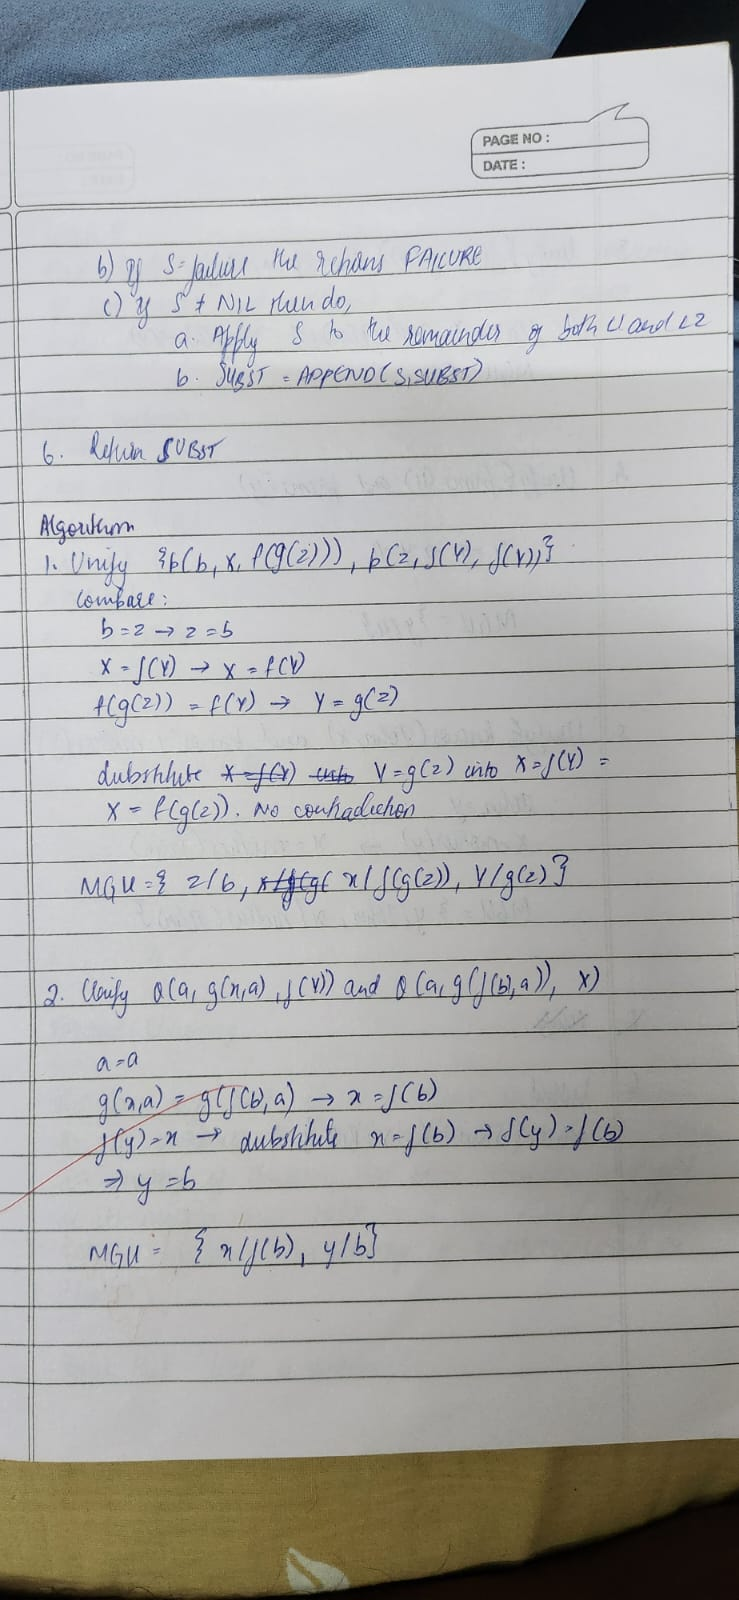 PAGE NO :
DATE :
b) If S = failure the returns FAILURE
c) If S ≠ NIL then do,
a. Apply S to the remainder of both L1 and L2
b. SUBST = APPEND(S, SUBST)
6. Return SUBST
Algorithm
1. Unify {p(b, x, f(g(z))), p(z, f(Y), f(Y))}
Compare:
b = z → z = b
X = f(Y) → X = f(Y)
f(g(z)) = f(Y) → Y = g(z)
substitute Y = g(z) into X = f(Y) =
X = f(g(z)). No contradiction
MGU = { z/b, x/f(g(z)), Y/g(z) }
2. Unify Q(a, g(x,a), f(Y)) and Q(a, g(f(b),a)), x)
a = a
g(x,a) = g(f(b),a) → x = f(b)
f(y) = x → substitute x = f(b) → f(y) = f(b)
⇒ y = b
MGU = { x/f(b), y/b}